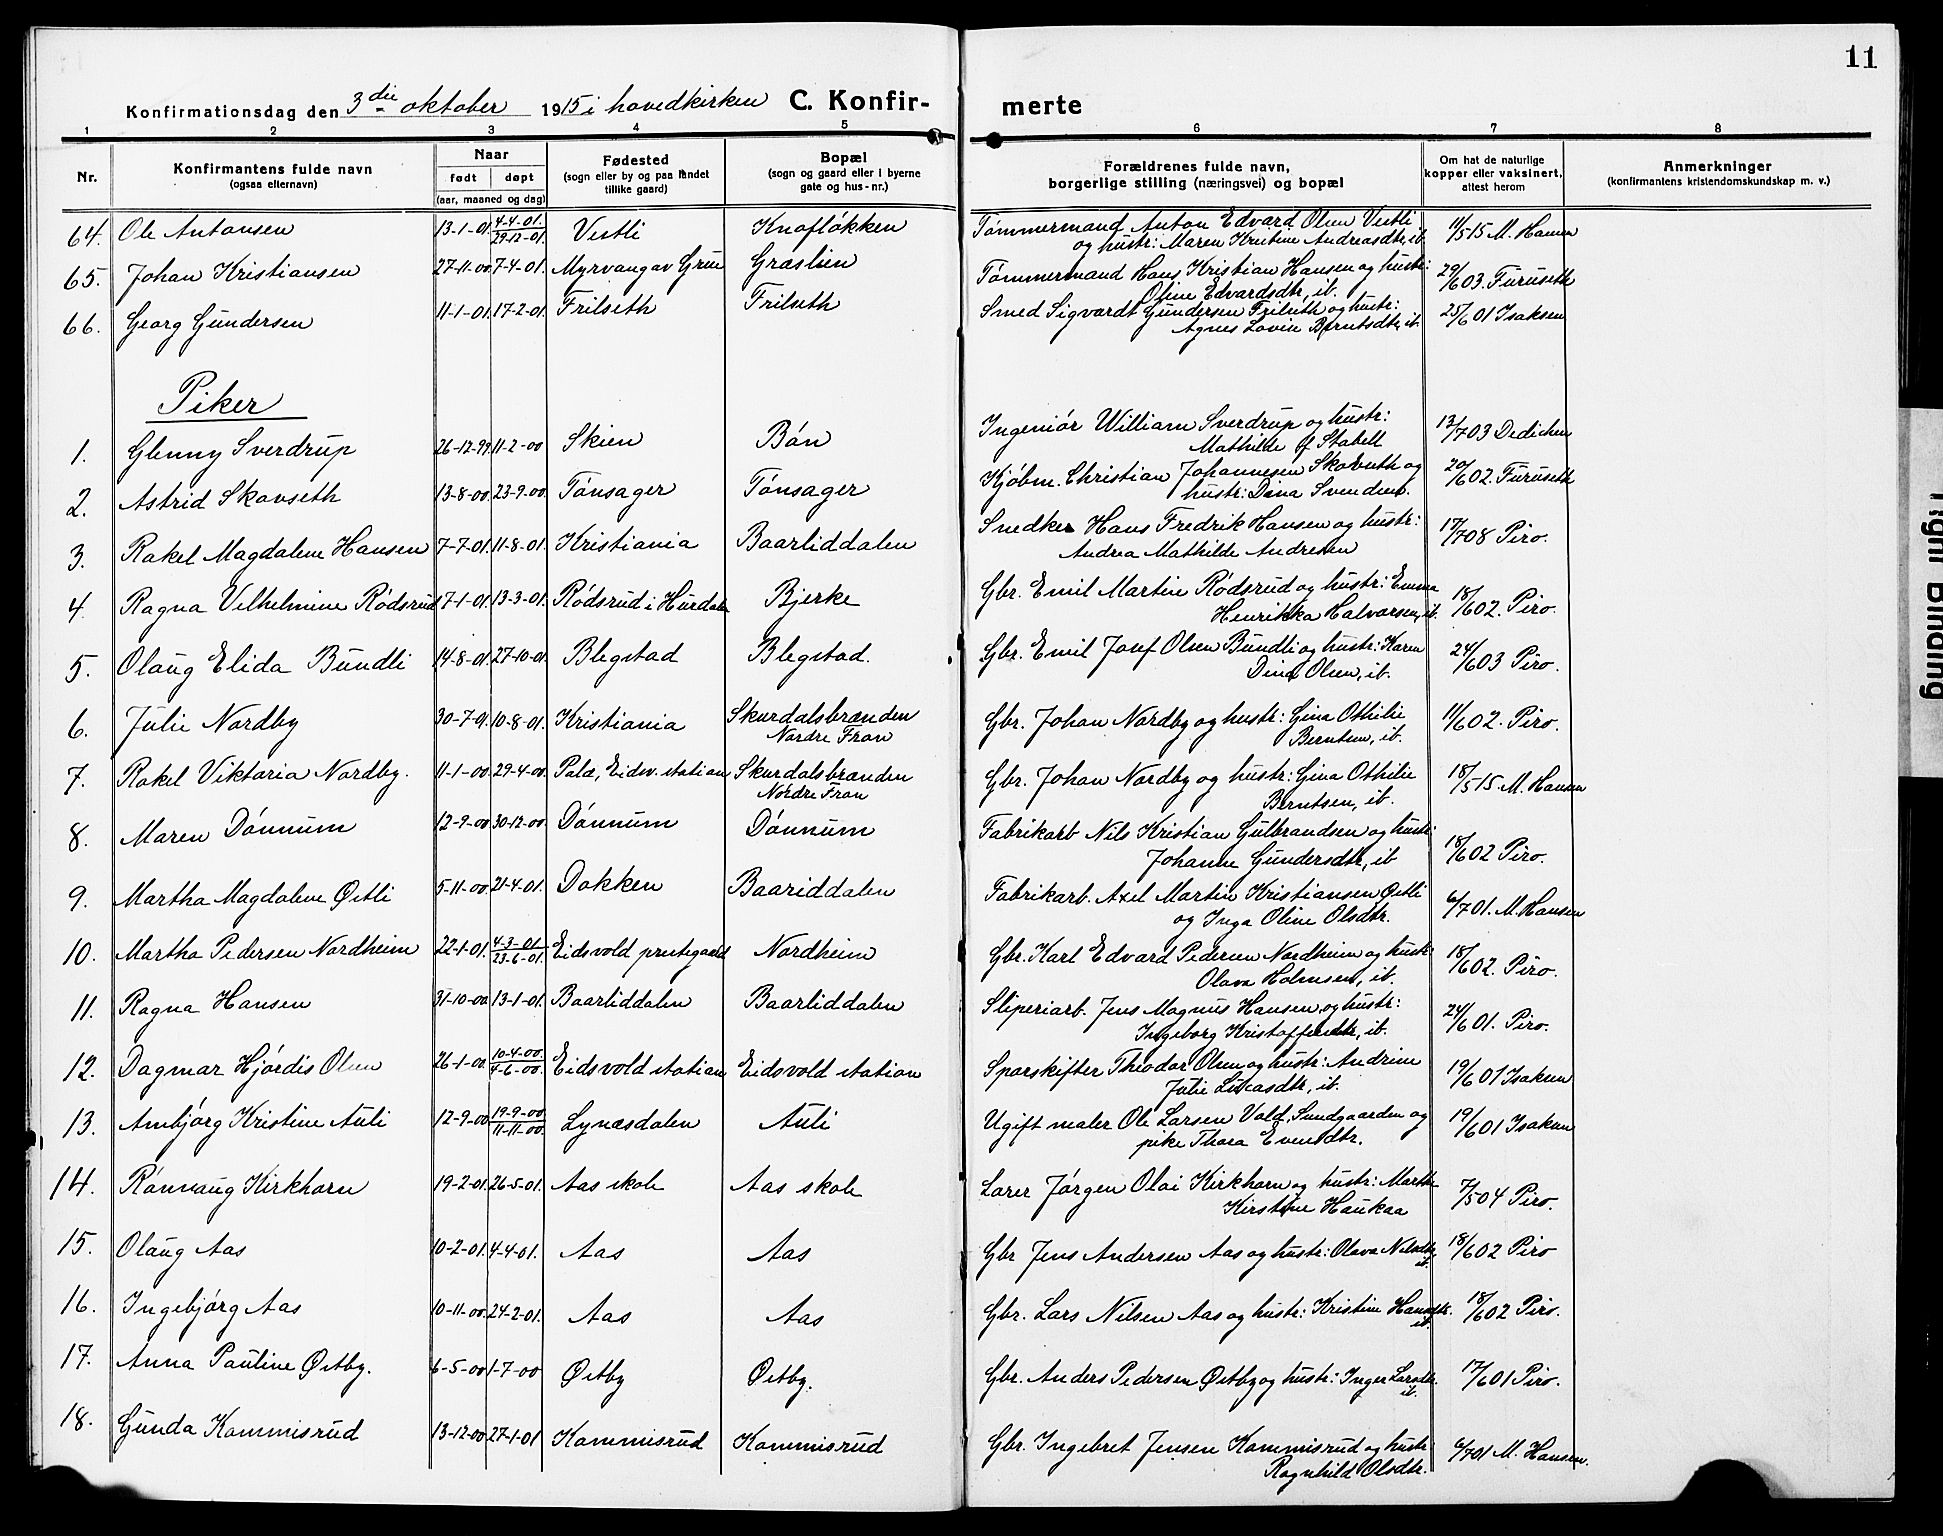 11
Konfirmationsdag den 3die oktober 1915 i hovedkirken C. Konfir- merte
1 2 3 4 5 6 7 8
Nr. Konfirmantens fulde navn (ogsaa efternavn) Naar født døpt (aar, maaned og dag) Fødested (sogn eller by og paa landet tillike gaard) Bopæl (sogn og gaard eller i byerne gate og hus-nr.) Forældrenes fulde navn, borgerlige stilling (næringsvei) og bopæl Om hat de naturlige kopper eller vaksinert, attest herom Anmerkninger (konfirmantens kristendomskundskap m. v.)
64. Ole Antonsen 13-1-01. 4-4-01. 29-12-01. Vestli Knofløkken Tømmermand Anton Edvard Olsen Vestli 11/5 15 M. Hansen
og hustr: Maren Kristine Andreasdtr, ib.
65. Johan Kristiansen 27-11-00. 7-4-01. Myrvang av Grue Graslien Tømmermand Hans Kristian Hansen og hustr: 29/6 03. Furuseth
Oline Edvardsdtr, ib.
66. Georg Gundersen 11-1-01. 17-2-01. Frilseth Frilseth Smed Sigvardt Gundersen Frilseth og hustr: 25/6 01 Isaksen
Agnes Lovise Berntsdtr, ib.
Piker
1. Glenny Sverdrup 26-12-99. 11-2-00 Skien Bøn Ingeniør William Sverdrup og hustr: 13/7 03 Dedichen
Mathilde f Stabell
2. Astrid Skovseth 13-8-00. 23-9-00. Tønsager Tønsager Kjøbm. Christian Johannesen Skovseth og 20/6 02. Furuseth
hustr: Dina Svendsen.
3. Rakel Magdalene Hansen 7-7-01. 11-8-01. Kristiania Baarliddalen Snedker Hans Fredrik Hansen og hustr: 17/7 08 Piro.
Andrea Mathilde Andresen
4. Ragna Vilhelmine Rødsrud 17-1-01. 13-3-01. Rødsrud i Hurdalen Bjerke Gbr. Emil Martin Rødsrud og hustr: Emma 18/6 02. Piro.
Henrikka Halvorsen, ib.
5. Olaug Elida Bundli 14-8-01. 27-10-01. Blegstad Blegstad. Gbr. Emil Josef Olsen Bundli og hustr: Karen 24/6 03 Piro.
Dina Olsen, ib.
6. Julie Nordby 30-7-01. 10-8-01. Kristiania Skurdalsbrænden Gbr. Johan Nordby og hustr: Gina Othilie 11/6 02. Piro.
Nordre Fron Berntsen, ib.
7. Rakel Viktoria Nordby. 11-1-00. 29-4-00. Palæ, Eidsv. station Skurdalsbrænden Gbr. Johan Nordby og hustr: Gina Othilie 18/5 15. M. Hansen
Nordre Fron Berntsen, ib.
8. Maren Dønnum 12-9-00. 30-12-00. Dønnum Dønnum Fabrikarb Nils Kristian Gulbrandsen og hustr: 18/6 02 Piro.
Johanne Gundersdtr, ib
9. Martha Magdalene Østli 5-11-00. 21-4-01. Dokken Baariddalen Fabrikarb. Axel Martin Kristiansen Østli 6/7 01. M. Hansen
og Inga Oline Olsdtr.
10. Martha Pedersen Nordheim 22-1-01. 4-3-01. 23-6-01. Eidsvold prestegaard Nordheim Gbr. Karl Edvard Pedersen Nordheim og hustr: 18/6 02. Piro.
Olava Holmsen, ib.
11. Ragna Hansen 31-10-00. 13-1-01. Baarliddalen Baarliddalen Sliperiarb. Jens Magnus Hansen, og hustr: 24/6 01. Piro.
Ingeborg Kristoffersdtr, ib.
12. Dagmar Hjørdis Olsen 26-1-00. 10-4-00. 4-6-00. Eidsvold station Eidsvold station Sporskifter Theodor Olsen og hustr: Andrine 19/6 01 Isaksen
Julie Lucasdtr, ib.
13. Arnbjørg Kristine Auli 12-9-00. 19-9-00. 11-11-00. Lynæsdalen Auli Ugift maler Ole Larsen Vold, Sundgaarden og 19/6 01 Isaksen
pike Thora Evensdtr.
14. Rønnaug Kirkhorn 19-2-01. 26-5-01. Aas skole Aas skole Lærer Jørgen Olai Kirkhorn og hustr: Marthe 7/5 04 Piro.
Kirstine Haukaa
15. Olaug Aas 10-2-01. 4-4-01. Aas Aas Gbr Jens Andersen Aas og hustr: Olava Nilsdtr, 18/6 02 Piro
ib.
16. Ingebjørg Aas 10-11-00. 24-2-01. Aas Aas Gbr. Lars Nilsen Aas og hustr: Kristine Hansdtr. 18/6 02 Piro.
ib.
17. Anna Pauline Østby. 6-5-00 1-7-00 Østby Østby. Gbr. Anders Pedersen Østby og hustr: Inger Larsdtr. 17/6 01 Piro.
ib.
18. Gunda Kommisrud 13-12-00 27-1-01 Kommisrud Kommisrud Gbr. Ingebret Jensen Kommisrud og hustr 6/7 01 M. Hansen.
Ragnhild Olsdtr.
Binding